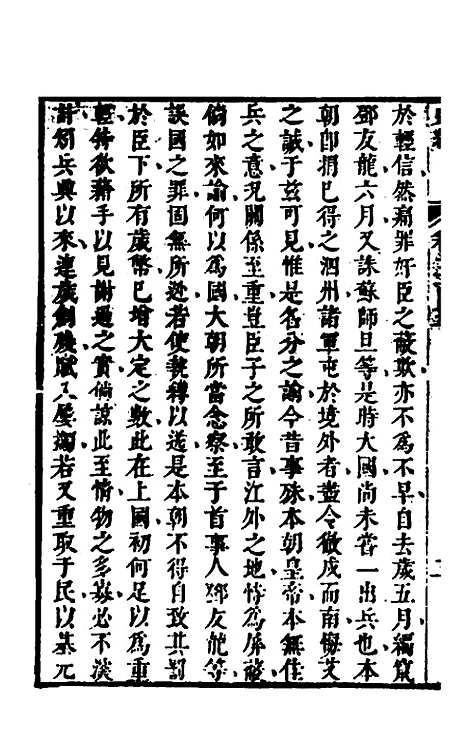 於輕信然痛罪奸臣之蔽欺亦不為不早自去歲五月編竄
鄧友龍六月又誅蘇師旦等是時大國尚未嘗一出兵也本
朝即捐已得之泗州諸軍屯於境外者盡令徹戍而南悔艾
之誠于茲可見惟是名分之諭今昔事殊本朝皇帝本無佳
兵之意況關係至重豈臣子之所敢言江外之地恃為屏蔽
倘如來諭何以為國大朝所當念察至于首事人鄧友龍等
誤國之罪固無所逃若使執縛以送是本朝不得自致其罰
於臣下所有歲幣已增大定之數此在上國初何足以為重
輕特欲藉手以見謝過之實倘諒此至情物之多寡必不深
計矧兵興以來連歲創殘賦入屢蠲若又重取于民以基元